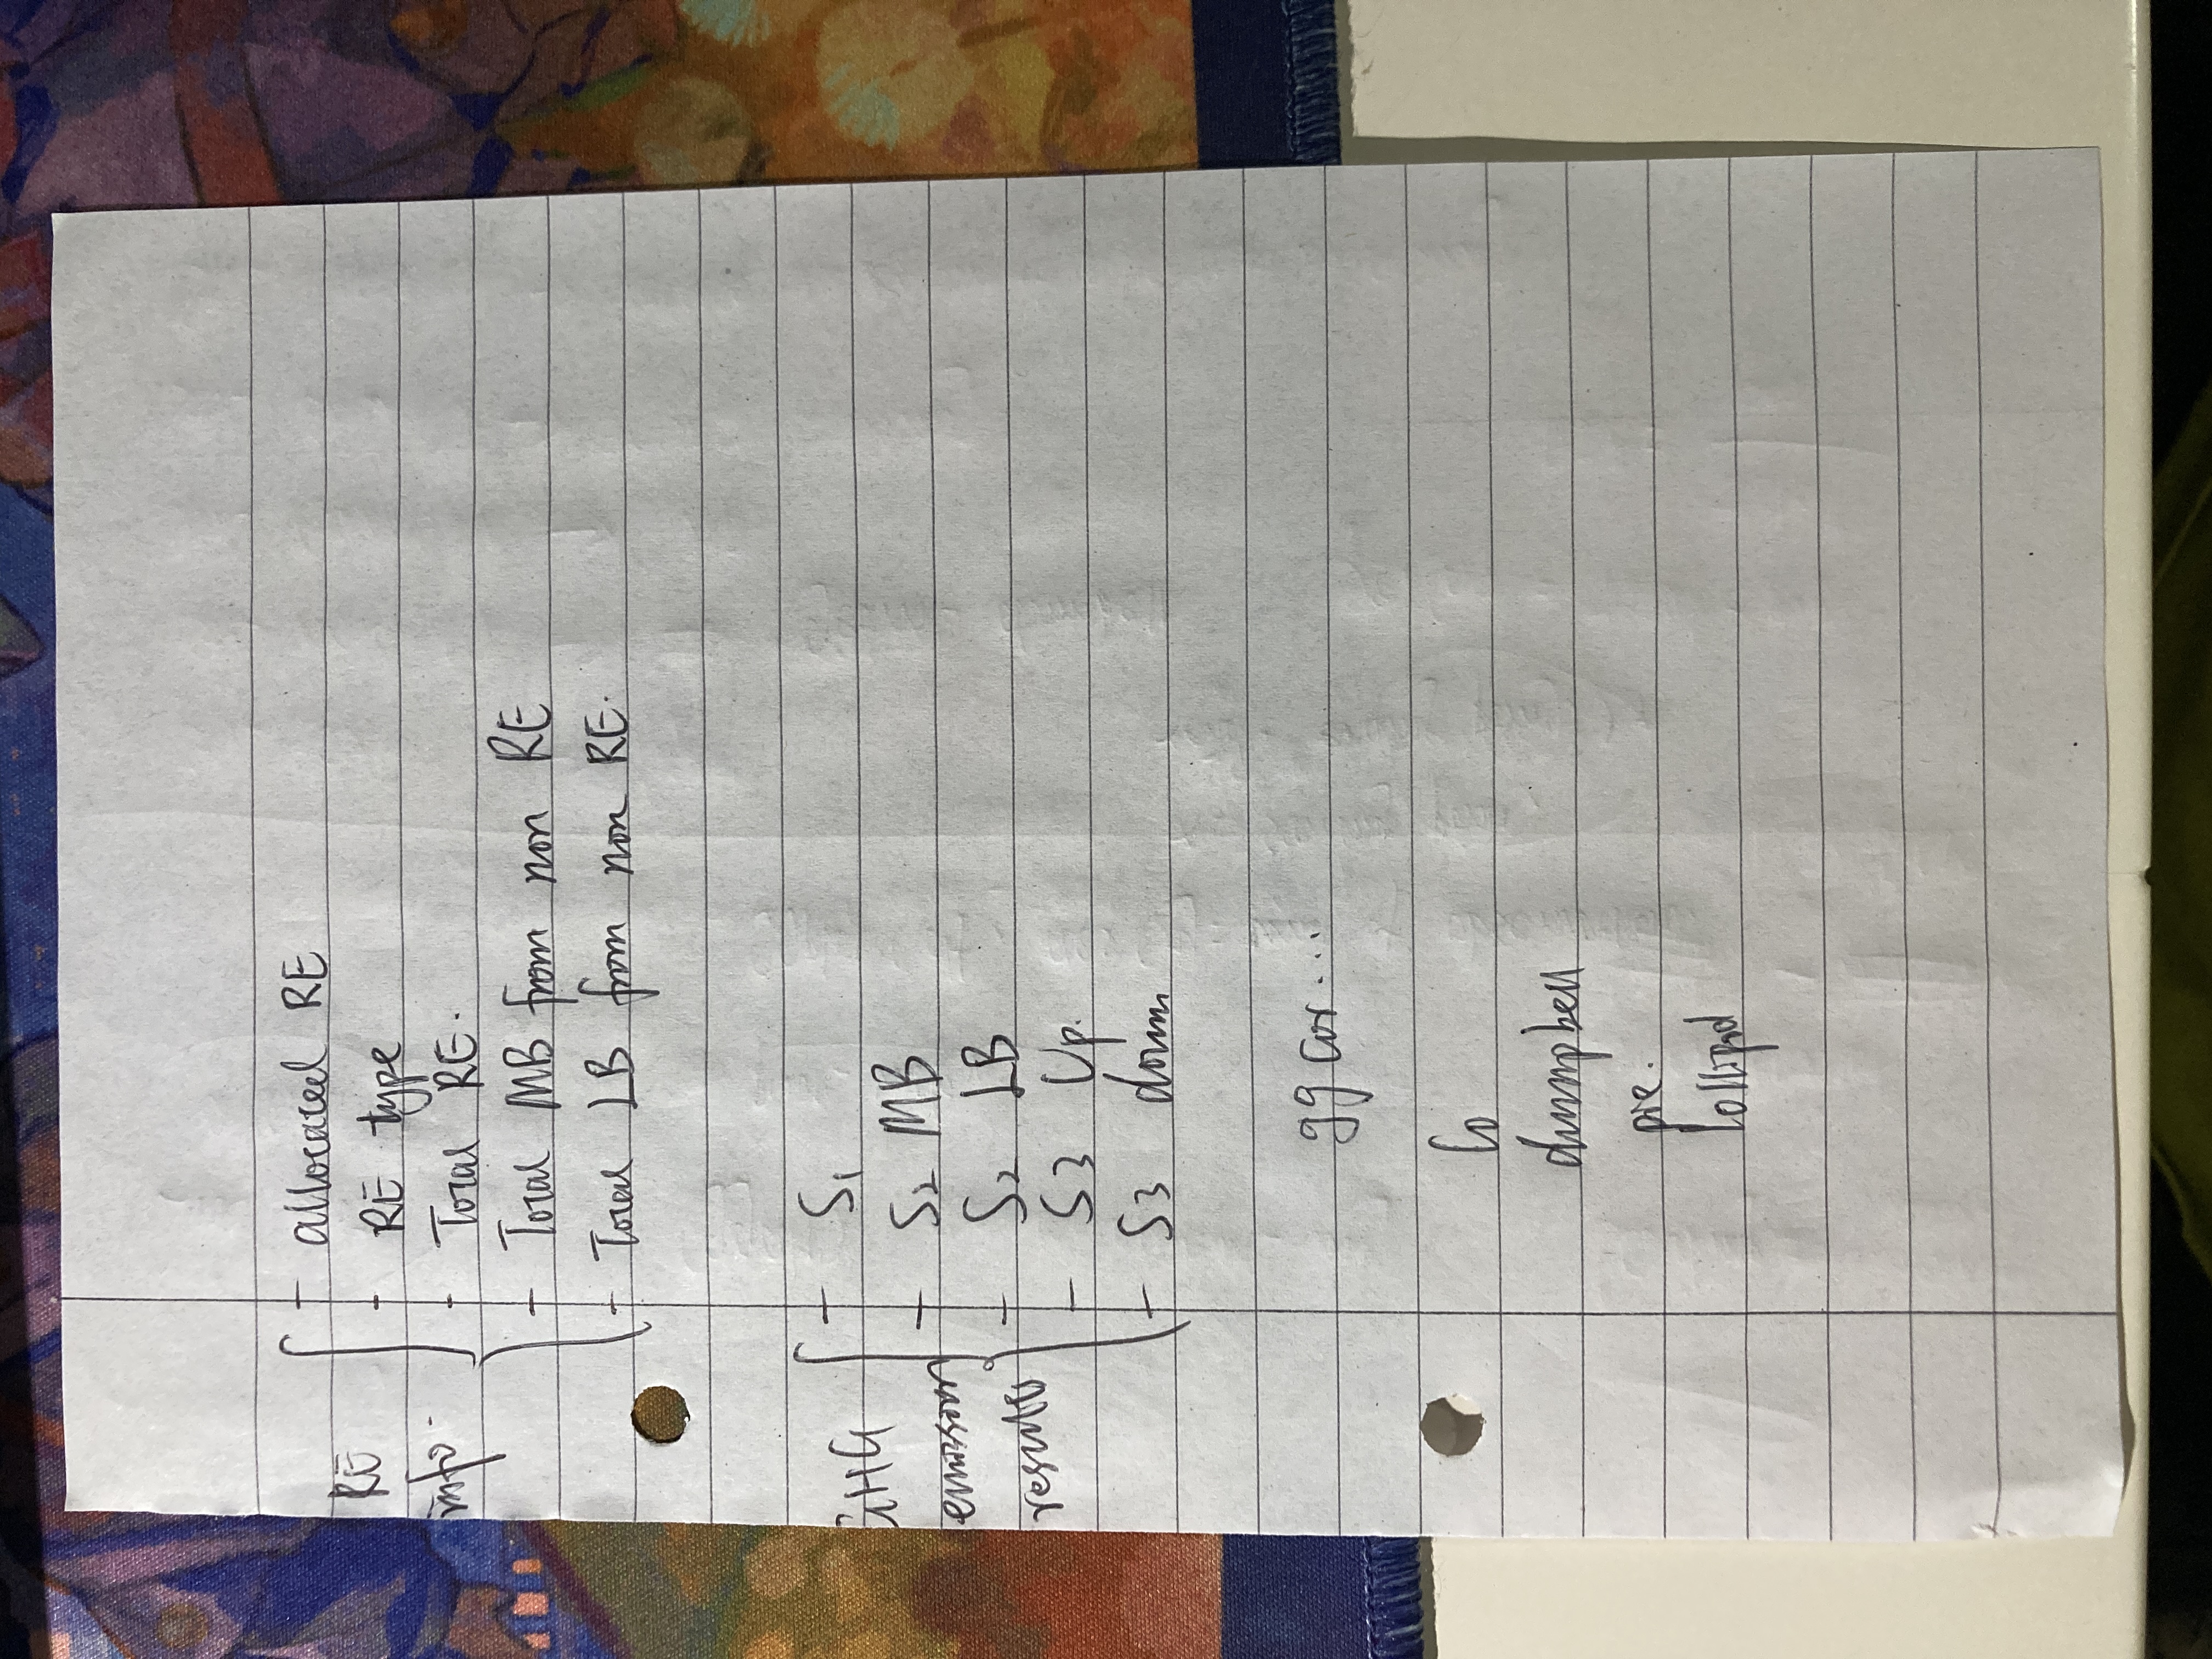 RE
info
allocated RE
RE type
Total RE.
Total MB from non RE
Total LB from non RE.
GHG
emission
results
S1
S2 MB
S2 LB
S3 Up.
S3 down
gg cor...
lo
dumpbell
pie.